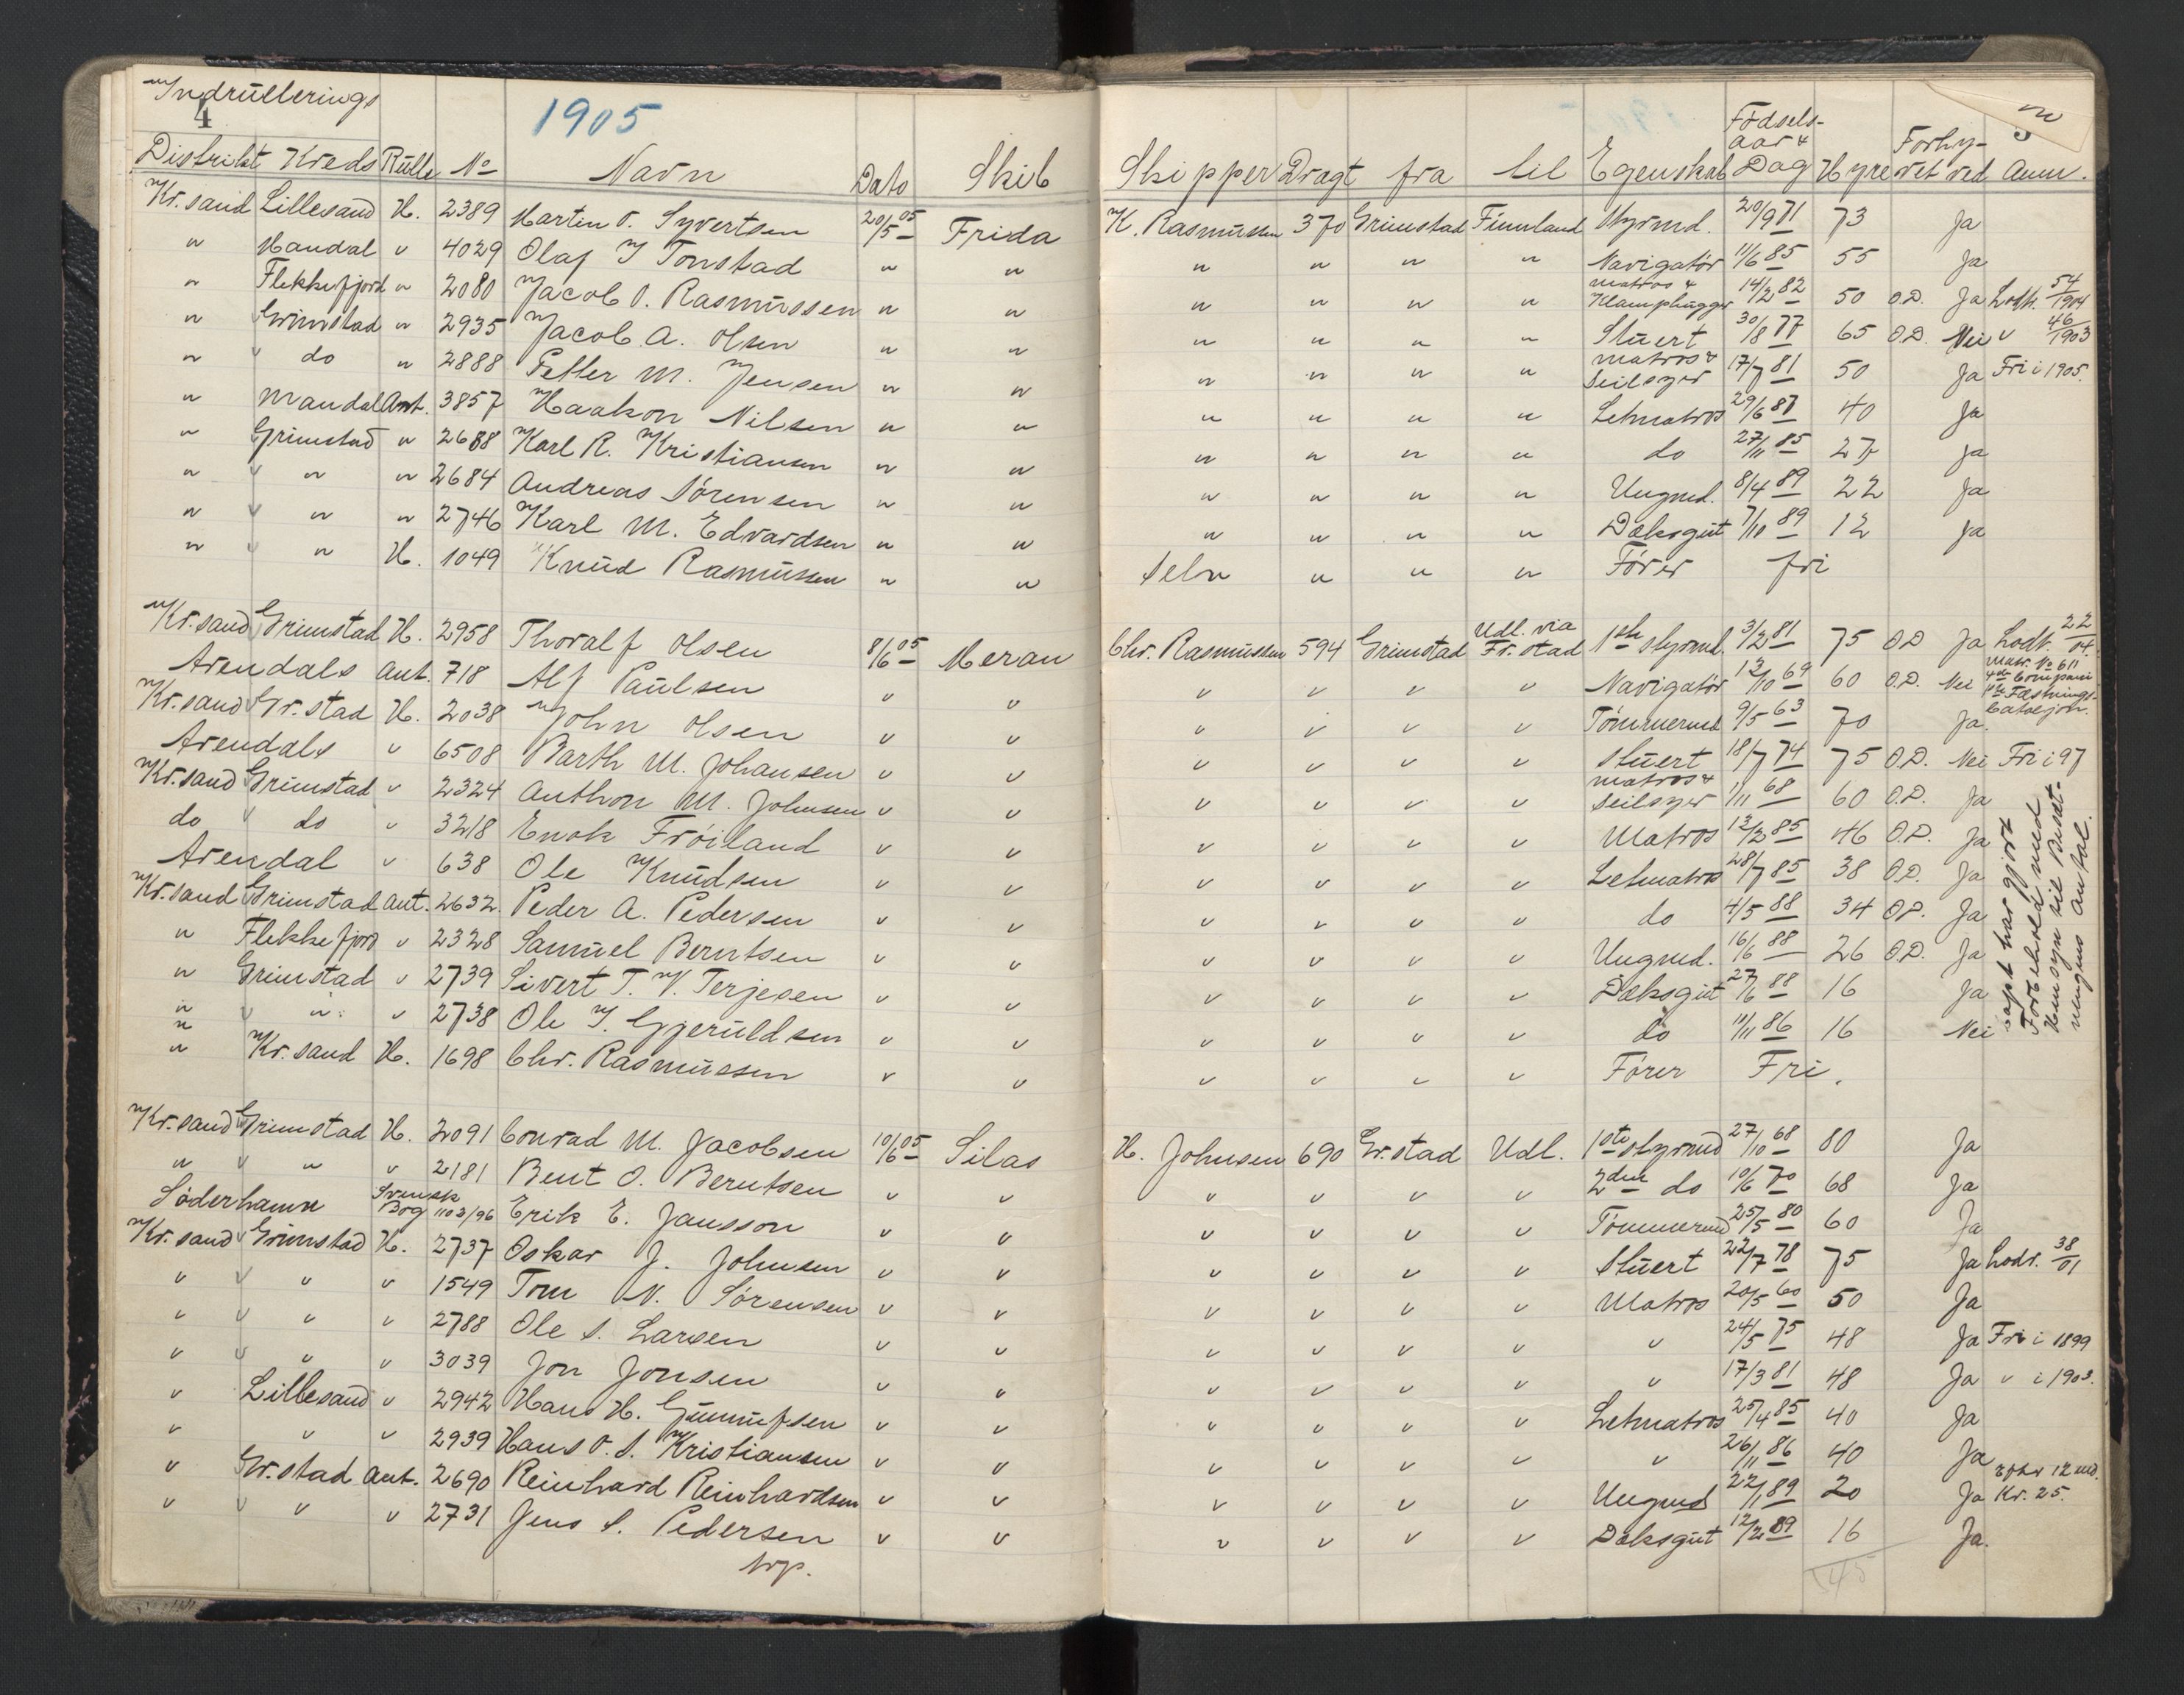 Indrullerings
4
1905
Distrikt Kreds Rulle No Navn Dato Skib Skipper Dragt fra til Egenskab Fødsels-aar & Dag Hyre Forhy-ret ved Anm.
Kr.sand Lillesand H. 2389 Martin O. Syvertsen 20/5 05 Frida K. Rasmussen 370 Grimstad Finnland Styrmd. 20/9 71 73 Ja
" Mandal " 4029 Olaf T Tonstad " " " " " " Navigatør 11/6 85 55 Ja
" Flekkefjord " 2080 Jacob O. Rasmussen " " " " " " Matros & Klamphugger 14/2 82 50 O.D. Ja Lodtr. 54/1904
" Grimstad " 2935 Jacob A. Olsen " " " " " " Stuert 30/8 77 65 O.D. Nei " 46/1903
" " do " 2888 Petter M. Jensen " " " " " " Matros & Seilsyer 17/7 81 50 Ja Fri i 1905.
" Mandal Ant. 3857 Haakon Nilsen " " " " " " Letmatros 29/6 87 40 Ja
" Grimstad " 2688 Karl R. Kristiansen " " " " " " do 27/11 85 27 Ja
" " " " 2684 Andreas Sørensen " " " " " " Ungmd. 8/4 89 22 Ja
" " " " 2746 Karl M. Edvardsen " " " " " " Dæksgut 7/10 89 12 Ja
" " " H. 1049 Knud Rasmussen " " Selv " " " Fører fri
Kr.sand Grimstad H. 2958 Thoralf Olsen 8/6 05 Meran Chr. Rasmussen 594 Grimstad Udl. via Fr.stad 1ste styrmd. 3/2 81 75 O.D Ja Lodtr. 22/04.
Arendals Ant. 718 Alf Paulsen " " " " " " Navigatør 12/10 69 60 O.D. Nei Matr. No 611 4de Compani 4de Fæstnings-bataljon.
Kr.sand Gr.stad H. 2038 John Olsen " " " " " " Tømmermd 9/5 63 70 Ja.
Arendals " 6508 Barth M. Johansen " " " " " " Stuert 18/7 74 75 O.D. Nei Fri i 97
Kr.sand Grimstad " 2324 Anthon M. Johnsen " " " " " " Matros & Seilsyer 1/11 68 60 O.D. Ja
do " do " 3218 Enok Frøiland " " " " " " Matros 12/2 85 46 O.D. Ja
Arendal " 638 Ole Knudsen " " " " " " Letmatros 28/7 85 38 O.D. Ja
Kr.sand Grimstad Ant. 2632. Peder A. Pedersen " " " " " " do 4/5 88 34 O.D. Ja
" Flekkefjord " 2328 Samuel Berntsen " " " " " " Ungmd. 16/6 88 26 O.D. Ja
" Grimstad " 2739 Sivert T. V. Terjesen " " " " " " Dæksgut 27/6 88 16 Ja
" " " " 2738 Ole T. Gjeruldsen " " " " " " do 11/11 86 16 Nei
" Kr.sand H. 1698 Chr. Rasmussen " " " " " " Fører Fri.
Capt har gjort
Forbehold med
Hensyn til Besæt-
ningens antal.
Kr.sand Grimstad H. 2091 Conrad M. Jacobsen 10/6 05 Silas H. Johnsen 690 Gr.stad Udl. 1ste styrmd 27/10 68 80 Ja
" " " " 2181 Bent O. Berntsen " " " " " " 2den do 10/6 70 68 Ja
Söderhamn Svensk Bog 1103/96 Erik E. Jansson " " " " " " Tømmermd 25/5 80 60 Ja
Kr.sand Grimstad H. 2737 Oskar J. Johnsen " " " " " " Stuert 22/7 78 75 Ja Lodr. 38/01
" " " " 1549 Tom N. Sørensen " " " " " " Matros 20/5 60 50 Ja
" " " " 2788 Ole S. Larsen " " " " " " " 24/5 75 48 Ja Fri i 1899
" " " " 3039 Jon Jonsen " " " " " " " 17/3 81 48 Ja " i 1903.
" Lillesand " 2942 Hans H. Gunnufsen " " " " " " Letmatros 25/4 85 40 Ja
" " " 2939 Hans O. S. Kristiansen " " " " " " " 26/11 86 40 Ja
" Gr.stad Ant. 2690 Reinhard Reinhardsen " " " " " " Ungmd 22/1 89 20 Ja efter 12 md. Kr. 25.
" " " " 2731 Jens S. Pedersen " " " " " " Dæksgut 12/2 89 16 Ja.